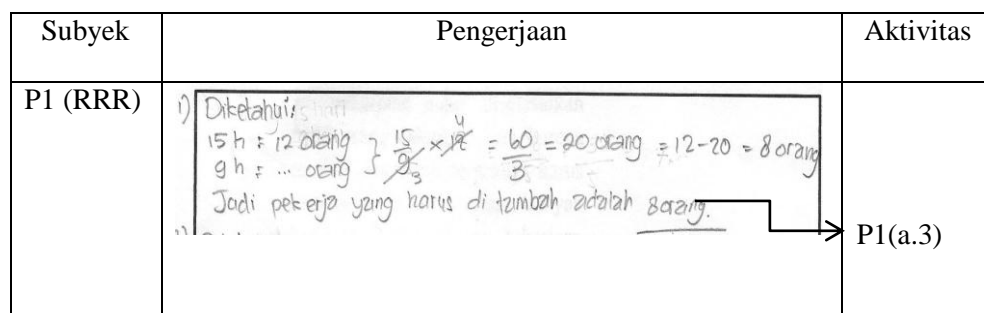 Subyek Pengerjaan Aktivitas
P1 (RRR)
1) Diketahui:
15 h : 12 orang } 15/9 3 × 12 4 = 60/3 = 20 orang = 12-20 = 8 orang
9 h : ... orang
Jadi pekerja yang harus di tambah adalah 8 orang.
P1(a.3)